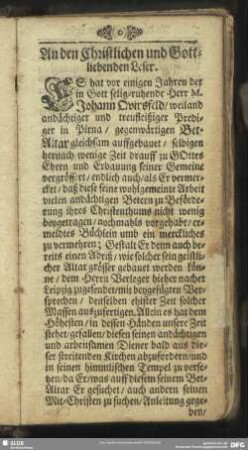 An den Christlichen und Gott-
liebenden Leser.
ES hat vor einigen Jahren der
in Gott selig-ruhende Herr M.
Johann Qvirsfeld / weiland
andächtiger und treufleißiger Predi-
ger in Pirna / gegenwärtigen Bet-
Altar gleichsam auffgebauet / selbigen
hernach wenige Zeit drauff zu GOttes
Ehren und Erbauung seiner Gemeine
vergrössert / endlich auch / als Er vermer-
cket / daß diese seine wohlgemeinte Arbeit
vielen andächtigen Betern zu Beförde-
rung ihres Christenthums nicht wenig
beygetragen / nochmahls vorgehabt / er-
meldtes Büchlein umb ein merckliches
zu vermehren; Gestalt Er denn auch be-
reits einen Abriß / wie solcher sein geistli-
cher Altar grösser gebauet werden kön-
ne / dem Herrn Verleger hieher nacher
Leipzig zugesendet / mit beygefügten Ver-
sprechen / denselben ehister Zeit solcher
Massen auszufertigen. Allein es hat dem
Höhesten / in dessen Händen unsere Zeit
stehet / gefallen / diesen seinen andächtigen
und arbeitsamen Diener bald aus die-
ser streitenden Kirchen abzufordern / und
in seinen himmlischen Tempel zu verse-
hen / da Er / was auff diesem seinem Bet-
Altar Er gesuchet / auch andern seinen
Mit-Christen zu suchen / Anleitung gege-
ben /
SLUB
DFG